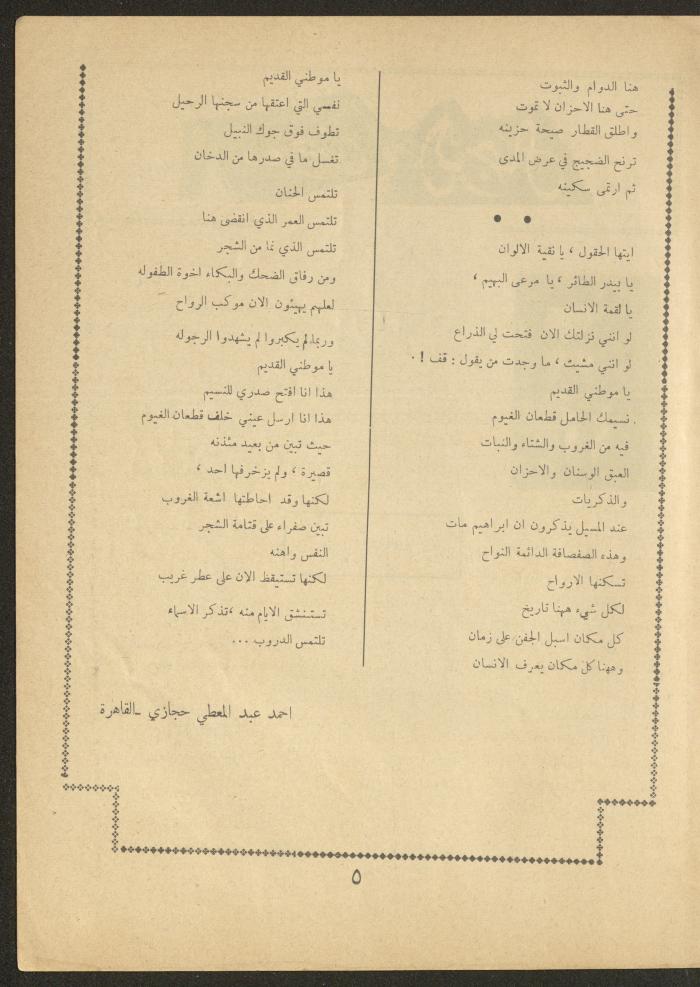 هنا الدوام والثبوت
حتى هنا الاحزان لا تموت
واطلق القطار صيحة حزينه
ترنح الضجيج في عرض المدى
ثم ارتمى سكينه
● ●
ايتها الحقول ، يا نقية الالوان
يا بيدر الطائر ، يا مرعى البهيم ،
يا لقمة الانسان
لو انني نزلتك الان فتحت لي الذراع
لو انني مشيت ، ما وجدت من يقول : قف ! .
يا موطني القديم
نسيمك الحامل قطعان الغيوم
فيه من الغروب والشتاء والنبات
العبق الوسنان والاحزان
والذكريات
عند المسيل يذكرون ان ابراهيم مات
وهذه الصفصافة الدائمة النواح
تسكنها الارواح
لكل شيء ههنا تاريخ
كل مكان اسبل الجفن على زمان
وههنا كل مكان يعرف الانسان
يا موطني القديم
نفسي التي اعتقها من سجنها الرحيل
تطوف فوق جوك النبيل
تغسل ما في صدرها من الدخان
تلتمس الحنان
تلتمس العمر الذي انقضى هنا
تلتمس الذي نما من الشجر
ومن رفاق الضحك والبكاء اخوة الطفوله
لعلهم يهيئون الان موكب الرواح
وربما لم يكبروا لم يشهدوا الرجوله
يا موطني القديم
هذا انا افتح صدري للنسيم
هذا انا ارسل عيني خلف قطعان الغيوم
حيث تبين من بعيد مئذنه
قصيرة ، ولم يزخرفها احد ،
لكنها وقد احاطتها اشعة الغروب
تبين صفراء على قتامة الشجر
النفس واهنه
لكنها تستيقظ الان على عطر غريب
تستنشق الايام منه ، تذكر الاسماء
تلتمس الدروب ...
احمد عبد المعطي حجازي ـ القاهرة
٥